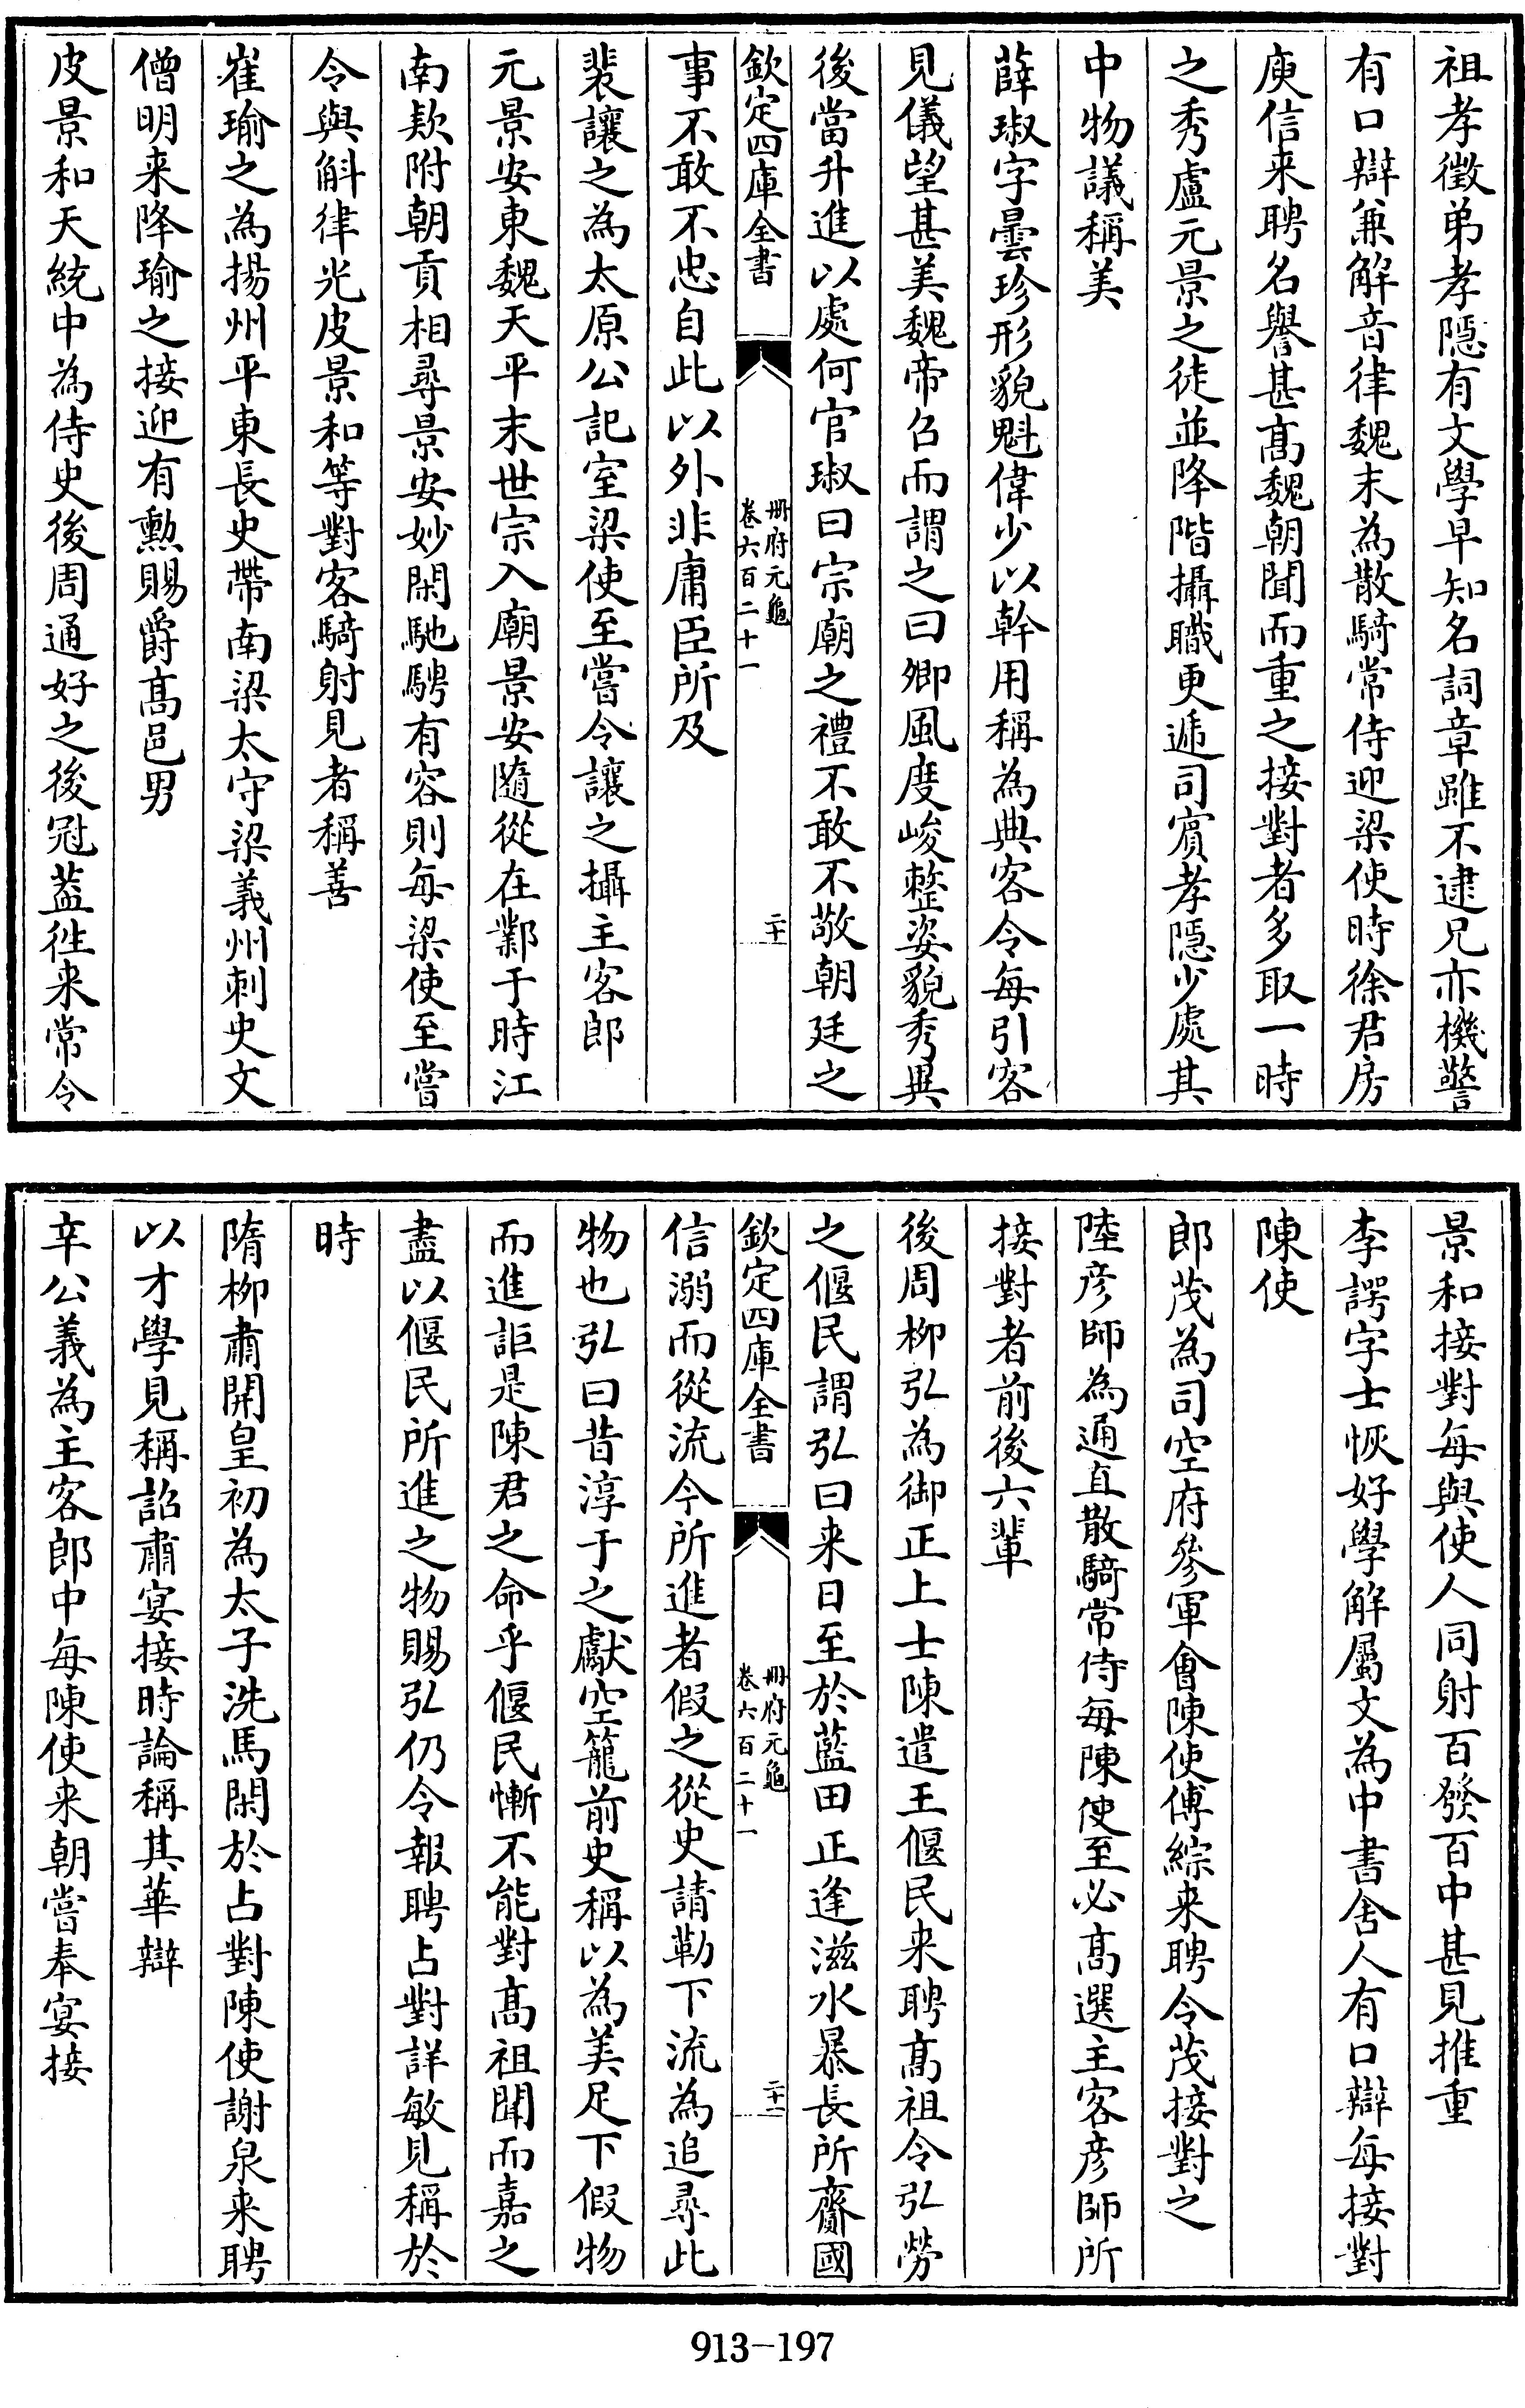 祖孝徵弟孝隠有文學早知名詞章雖不逮兄亦機警
有口辯兼解音律魏末為散騎常侍迎梁使時徐君房
庾信来聘名譽甚髙魏朝聞而重之接對者多取一時
之秀盧元景之徒並降階攝職更遞司賔孝隠少處其
中物議稱美
薛琡字曇珍形貌魁偉少以幹用稱為典客令每引客
見儀望甚美魏帝召而謂之曰卿風度峻整姿貌秀異
後當升進以處何官琡曰宗廟之禮不敢不敬朝廷之
欽定四庫全書
冊府元龜
卷六百二十一
二十
事不敢不忠自此以外非庸臣所及
裴讓之為太原公記室梁使至嘗令讓之攝主客郎
元景安東魏天平末世宗入廟景安隨從在鄴于時江
南欵附朝貢相尋景安妙閑馳騁有容則每梁使至嘗
令與斛律光皮景和等對客騎射見者稱善
崔瑜之為揚州平東長史帶南梁太守梁義州刺史文
僧明来降瑜之接迎有勲賜爵髙邑男
皮景和天統中為侍史後周通好之後冠葢徃来常令
景和接對每與使人同射百發百中甚見推重
李諤字士恢好學解屬文為中書舍人有口辯每接對
陳使
郎茂為司空府參軍會陳使傅綜来聘令茂接對之
陸彦師為通直散騎常侍每陳使至必髙選主客彦師所
接對者前後六輩
後周柳弘為御正上士陳遣王偃民来聘髙祖令弘勞
之偃民謂弘曰来日至於藍田正逢滋水暴長所齎國
欽定四庫全書
冊府元龜
卷六百二十一
二十一
信溺而從流今所進者假之從史請勒下流為追尋此
物也弘曰昔淳于之獻空籠前史稱以為美足下假物
而進詎是陳君之命乎偃民慚不能對髙祖聞而嘉之
盡以偃民所進之物賜弘仍令報聘占對詳敏見稱於
時
隋柳肅開皇初為太子洗馬閑於占對陳使謝泉来聘
以才學見稱詔肅宴接時論稱其華辯
辛公義為主客郎中每陳使来朝嘗奉宴接
913-197